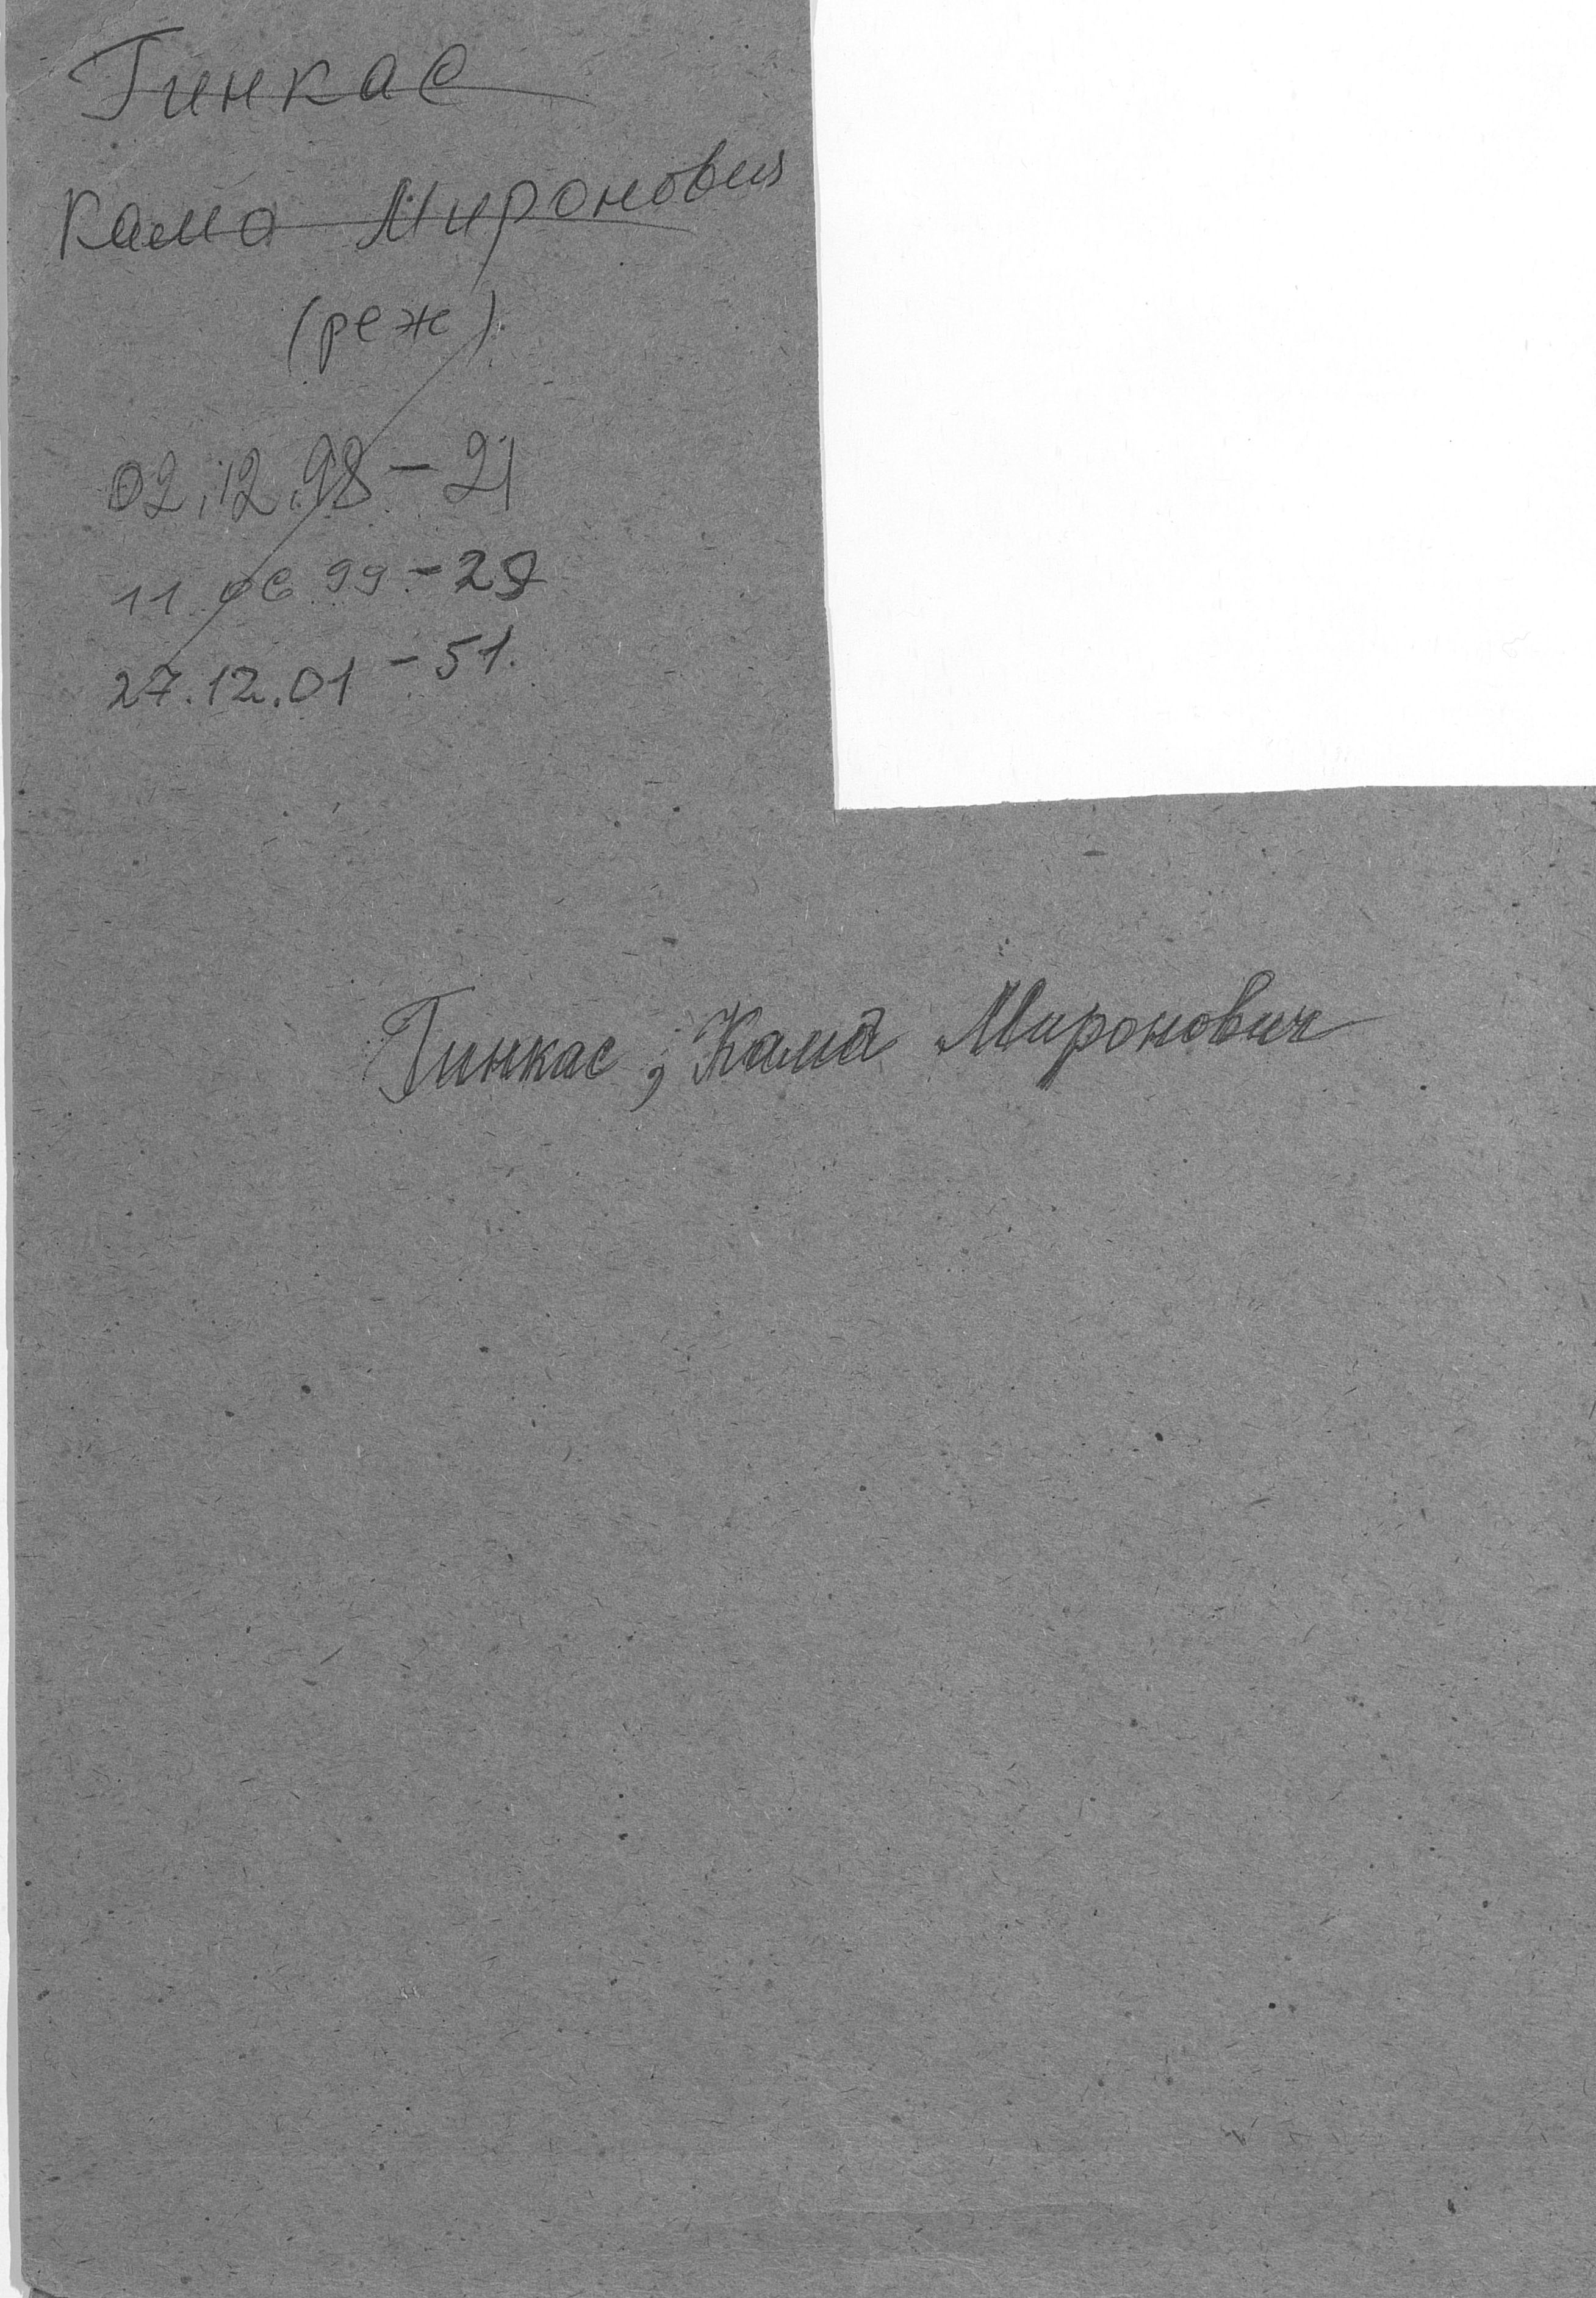 Гинкас
Кама Миронович
(реж).
02.12.98 – 21
11 06 99 – 29
27.12.01 – 51.
Гинкас, Кама Миронович